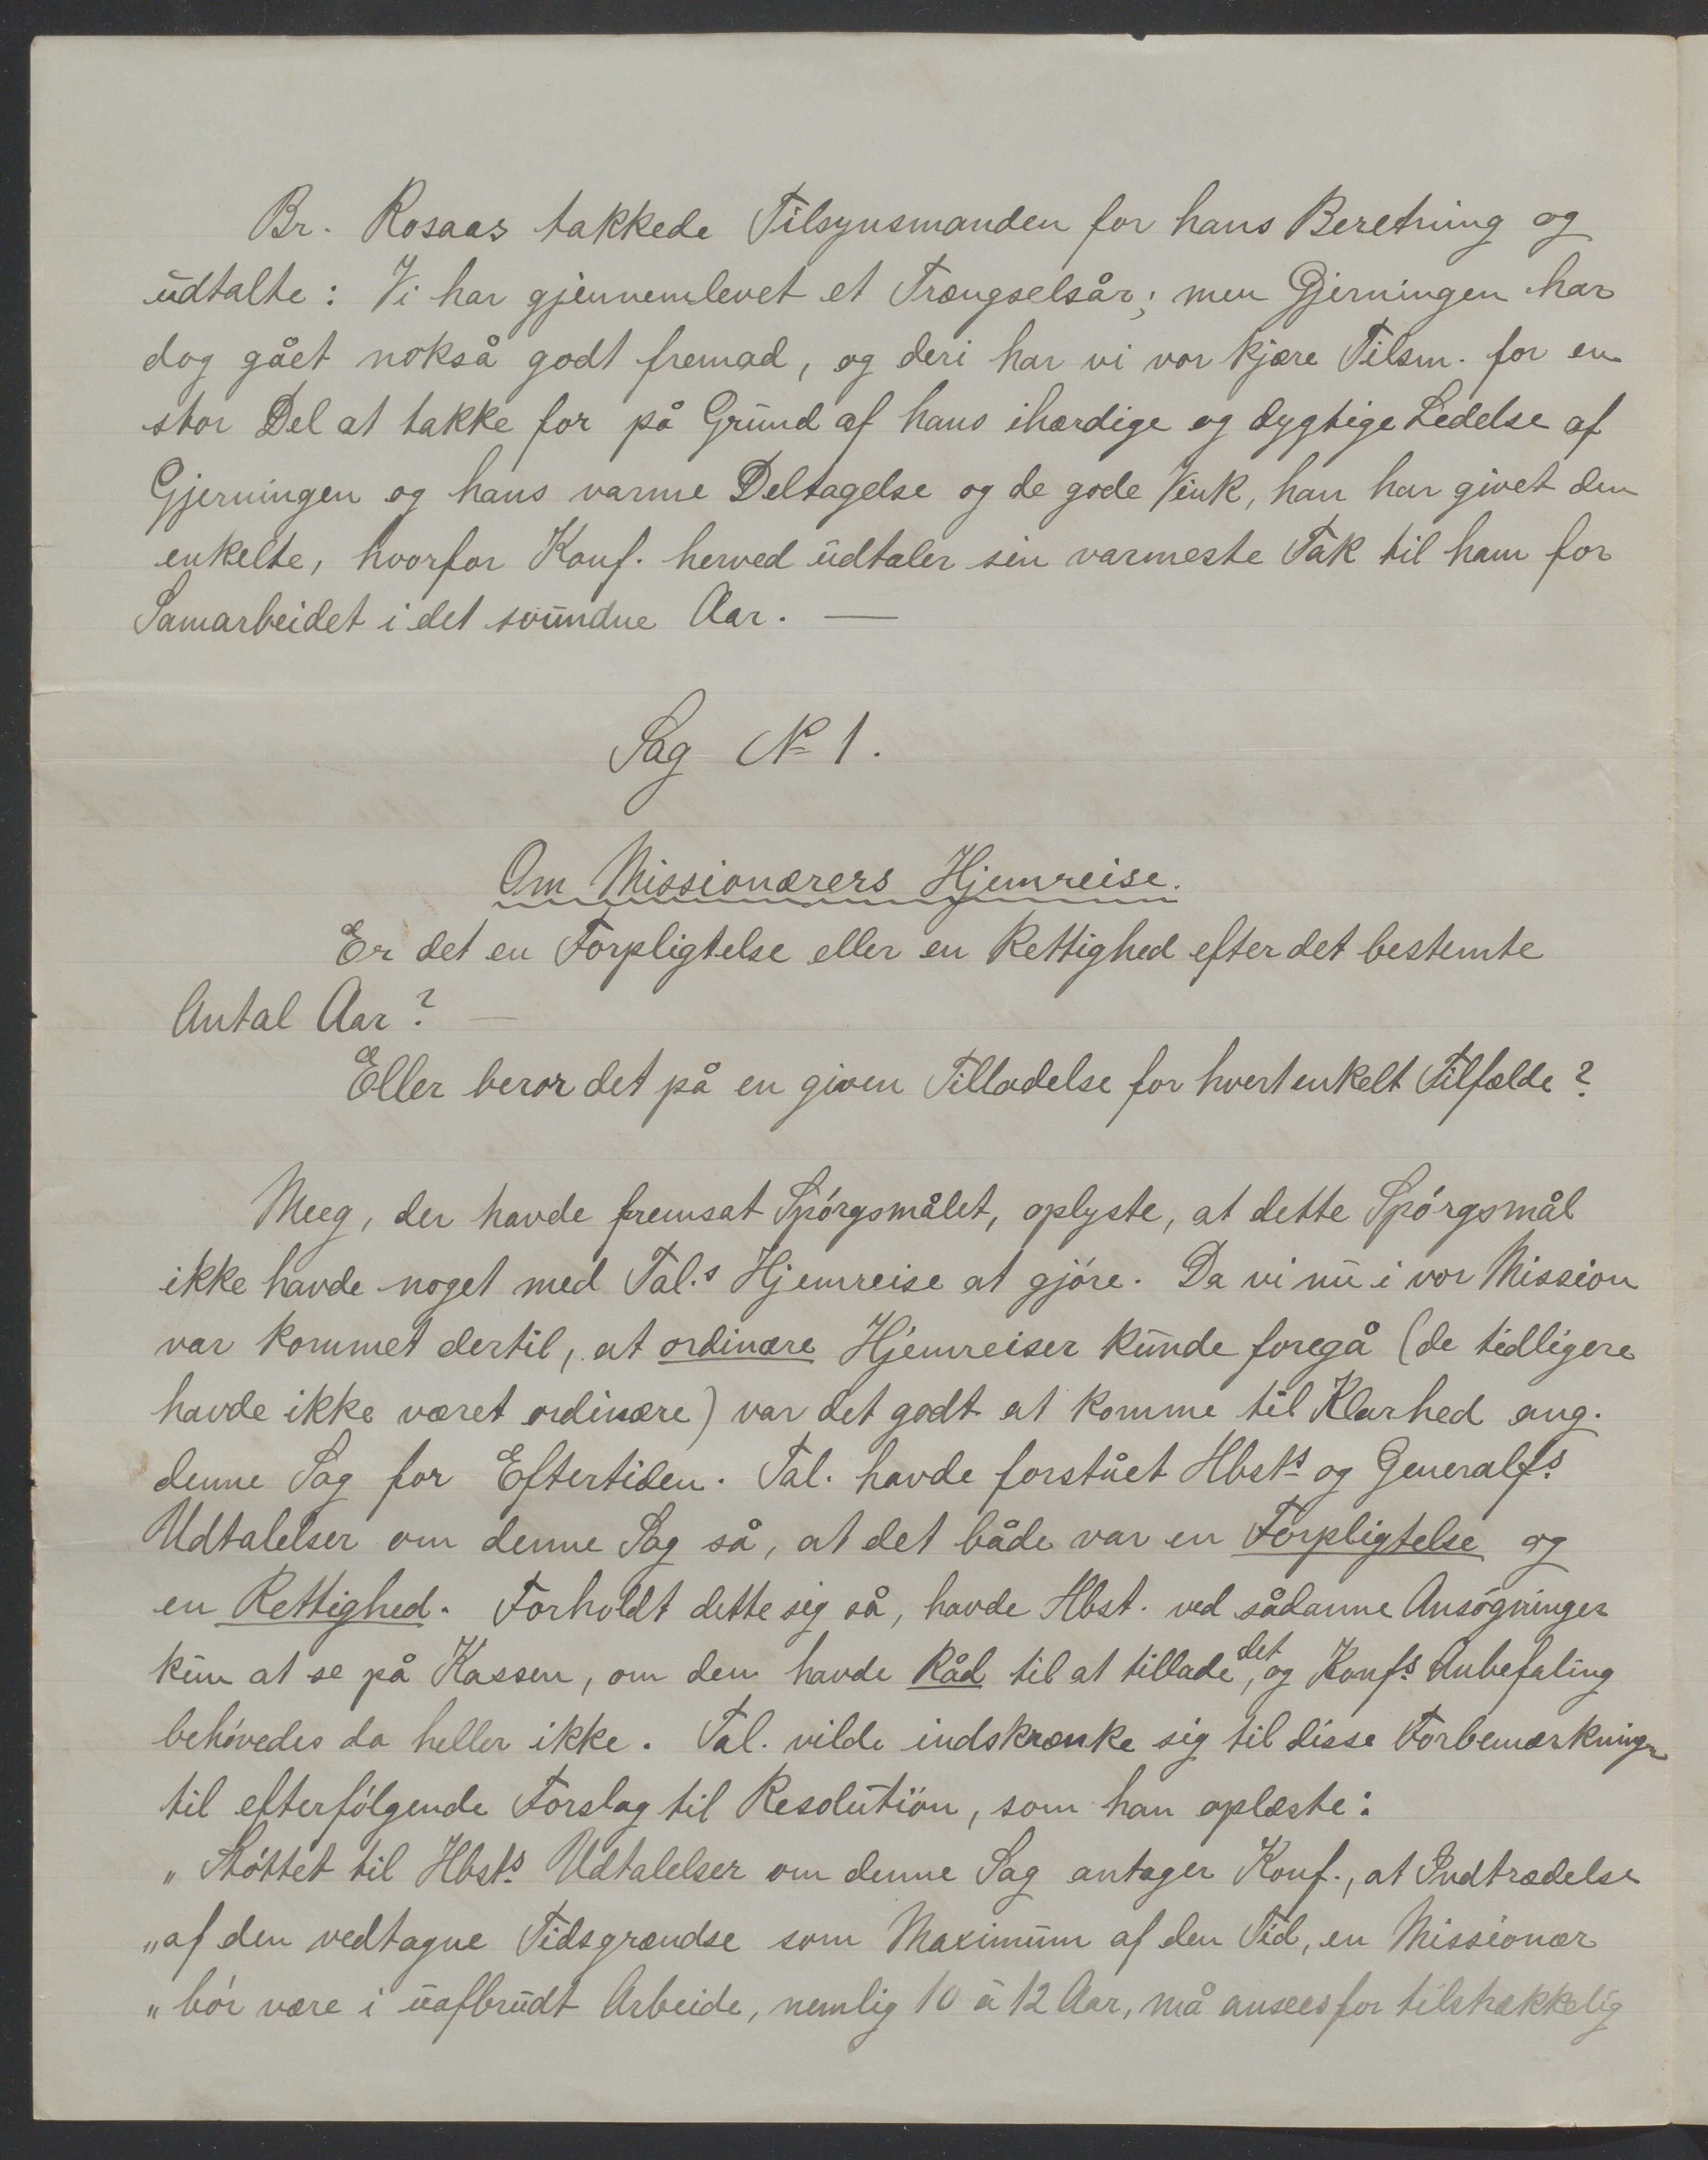 Br. Rosaas takkede Tilsynsmanden for hans Beretning og
udtalte: Vi har gjennemlevet et Trængselsår; men Gjerningen har
dog gået nokså godt fremad, og deri har vi vor kjære Tilsm. for en
stor Del at takke for på Grund af hans ihærdige og dygtige Ledelse af
Gjerningen og hans varme Deltagelse og de gode Vink, han har givet den
enkelte, hvorfor Konf. herved udtaler sin varmeste Tak til ham for
Samarbeidet i det svundne Aar. —
Sag No 1.
Om Missionærers Hjemreise.
Er det en Forpligtelse eller en Rettighed efter det bestemte
Antal Aar? —
Eller beror det på en given Tilladelse for hvert enkelt Tilfælde?
Meeg, der havde fremsat Spórgsmålet, oplyste, at dette Spórgsmål
ikke havde noget med Tal.s Hjemreise at gjóre. Da vi nu i vor Mission
var kommet dertil, at ordinære Hjemreiser kunde foregå (de tidligere
havde ikke været ordinære) var det godt at komme til Klarhed ang.
denne Sag for Eftertiden. Tal. havde forstået Hbsts og Generalfs.
Udtalelser om denne Sag så, at det både var en Forpligtelse og
en Rettighed. Forholdt dette sig så, havde Hbst. ved sådanne Ansógninger
kun at se på Kassen, om den havde Råd til at tillade det, og Konfs. Anbefaling
behóvedes da heller ikke. Tal. vilde indskrænke sig til disse Forbemærkninger
til efterfólgende Forslag til Resolution, som han oplæste:
„Stóttet til Hbsts. Udtalelser om denne Sag antager Konf., at Indtrædelse
„af den vedtagne Tidsgrændse som Maximum af den Tid, en Missionær
„bór være i uafbrudt Arbeide, nemlig 10 à 12 Aar, må ansees for tilstrækkelig